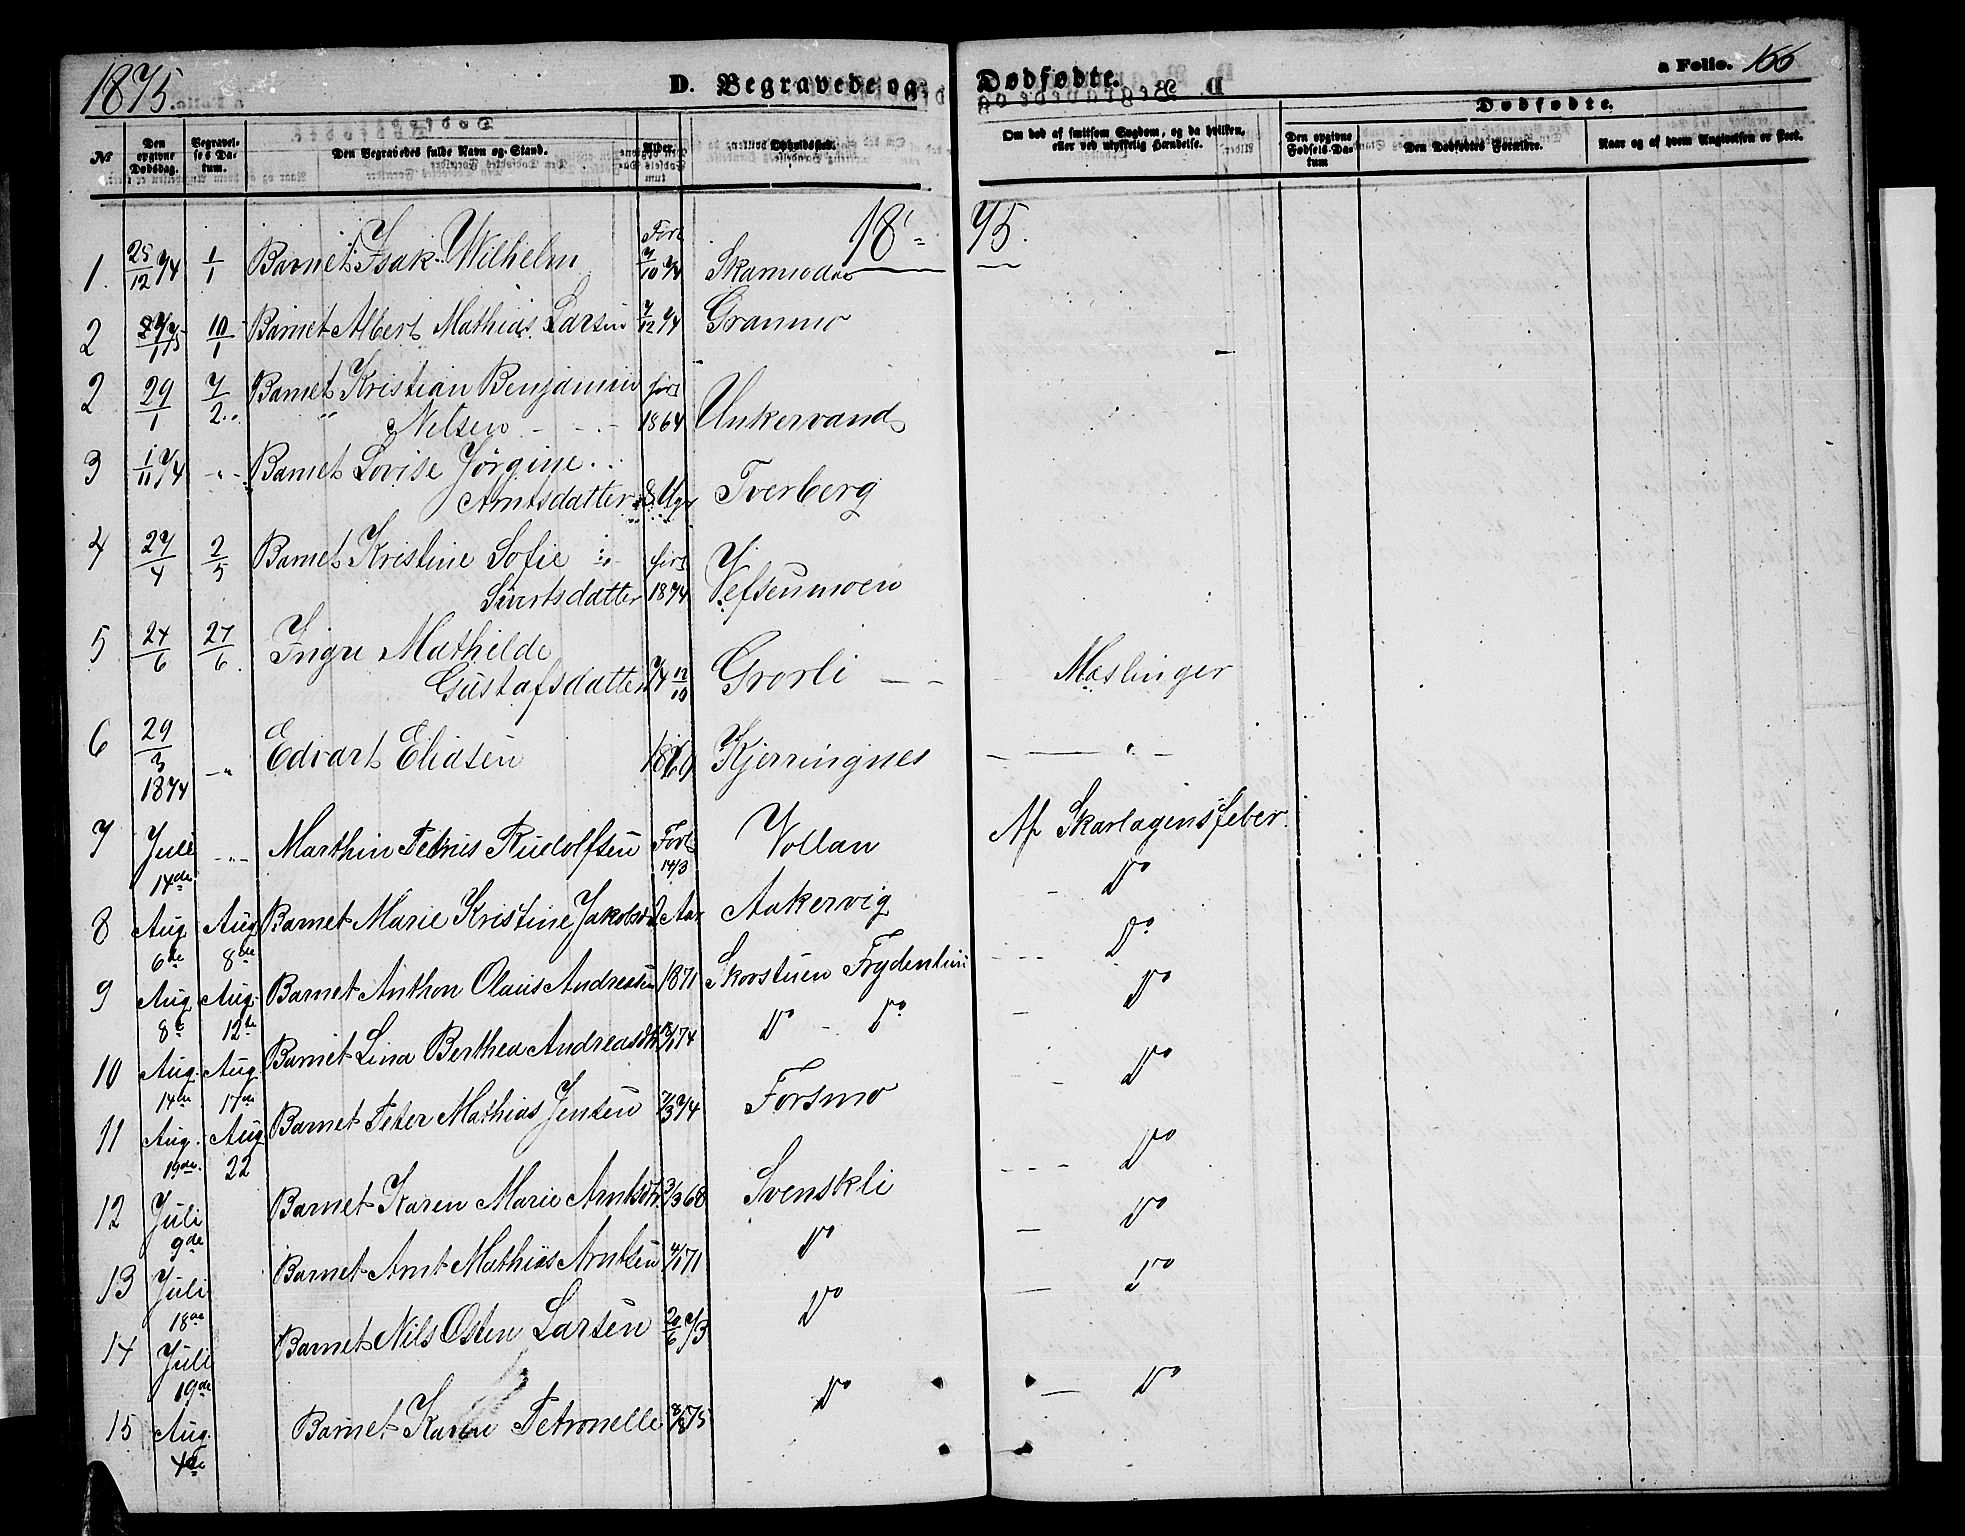 1875.
D. Begravede og
Dødfødte.
a Folio. 166
Dødfødte.
No
Den opgivne Dødsdag.
Begravelses Datum.
Den Begravedes fulde Navn og Stand.
Opholdssted.
Om død af smitsom Sygdom, og da hvilken, eller ved ulykkelig Hændelse.
Den opgivne Fødsels-Datum
Den Dødfødtes Forældre.
Naar og af hvem Angivelsen er skeet.
18 75.
1. 25/12 74 1/1 Barnet Isak Wilhelm Født 7/10 74
2 1/75 10/1 Barnet Albert Mathias Larsen 7/12 74 Granmo
2 29/1 7/2 Barnet Kristian Benjamin født
" Nilsen - - - 1864 Unkervand
3 1/11 74 -"- Barnet Lovise Jørgine
Arntsdatter 8 Ugr Tverberg
4 27/4 2/5 Barnet Kristine Sofie født
Sivertsdatter 1874 Vefsenmoen
5 24/6 27/6 Inger Mathilde
Gustafsdatter 74 12/10 Grorli - - Mæslinger
6 29/3 1874 -"- Edvart Eliasen 1869 Kjerringnes - " -
7 Juli 14de -"- Marthin Petrus Rudolfsen Født 14/3 Vollan Af Skarlagensfeber.
8 Aug 6te Aug 8de Barnet Marie Kristine Jakobsd 2 Aar Aakervig - Do
9 Aug 8de Aug. 12te Barnet Anthon Olaus Andreasen 1871 Skorstuen Frydenlund --- Do
10 Aug. 14de Aug. 17de Barnet Lina Berthea Andreasdtr 74 Do - Do - Do
11 Aug. 19de. Aug 22 Barnet Peter Mathias Jensen 7/3 74 Forsmo - Do
12 Juli 9de Barnet Karen Marie Arntsdtr. 3/3 68 Svenskli --- Do
13 Juli 18de Barnet Arnt Mathias Arntsen 4/1 71 Do - Do
14 Juli 19de Barnet Nils Osten Larsen 20/6 73 Do - Do
15 Aug. 4de Barnet Karen Petronelle 8/8 75 Do - Do